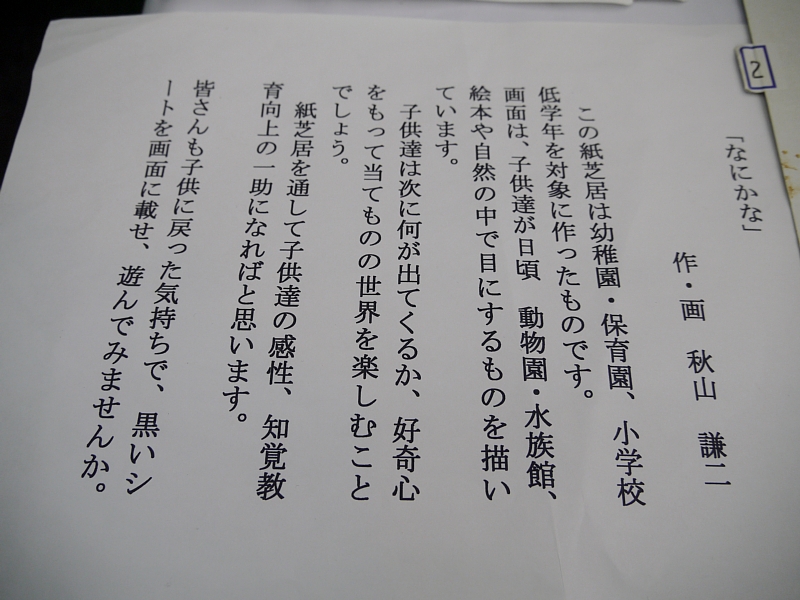 2
「なにかな」
作・画　秋山　謙二
この紙芝居は幼稚園・保育園、小学校
低学年を対象に作ったものです。
画面は、子供達が日頃　動物園・水族館、
絵本や自然の中で目にするものを描い
ています。
子供達は次に何が出てくるか、好奇心
をもって当てものの世界を楽しむこと
でしょう。
紙芝居を通して子供達の感性、知覚教
育向上の一助になればと思います。
皆さんも子供に戻った気持ちで、黒いシ
ートを画面に載せ、遊んでみませんか。